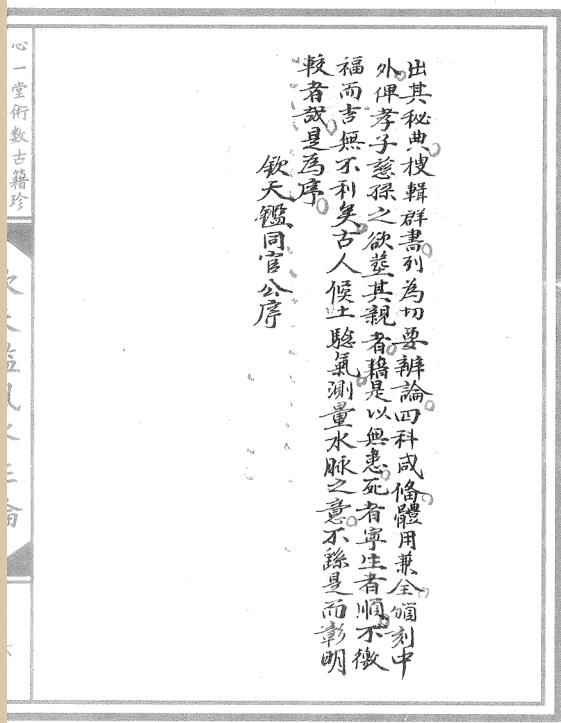 出其秘典搜輯群書列為切要辨論四科咸俻體用兼全頒刻中
外俾孝子慈孫之欲塟其親者藉是以無患死者寧生者順不徼
福而吉無不利矣古人候土騐氣測量水脉之意不繇是而彰明
較著哉是為序
欽天鑑同官公序
心一堂術數古籍珍